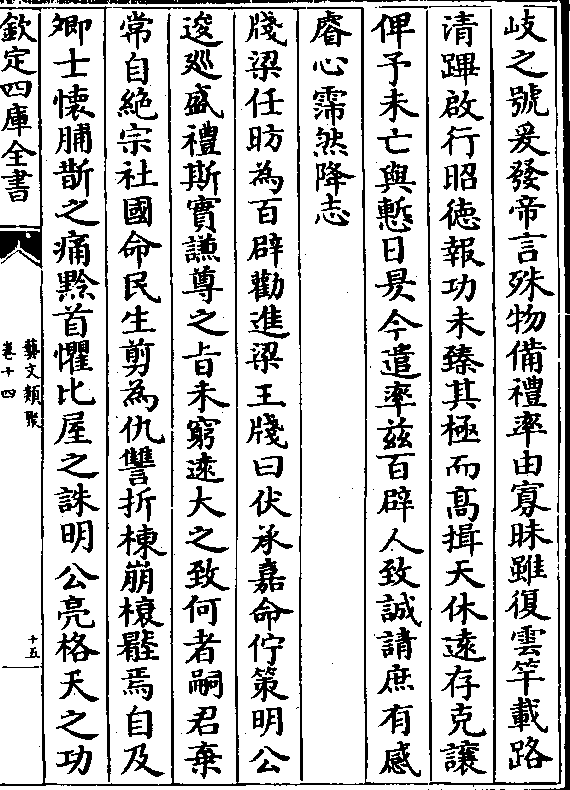 岐之號爰發帝言殊物備禮率由寡昧雖復雲竿載路
清蹕啟行昭徳報功未臻其極而髙揖天休逺存克讓
俾予未亡與慙日昃今遣率兹百辟人致誠請庶有感
睿心霈然降志
牋梁任昉為百辟勸進梁王牋曰伏承嘉命佇策明公
逡廵盛禮斯實謙尊之㫖未窮逺大之致何者嗣君棄
常自絶宗社國命民生剪為仇讐折棟崩榱壓焉自及
卿士懷脯斮之痛黔首懼比屋之誅明公亮格天之功
欽定四庫全書
藝文類聚
卷十四
十五